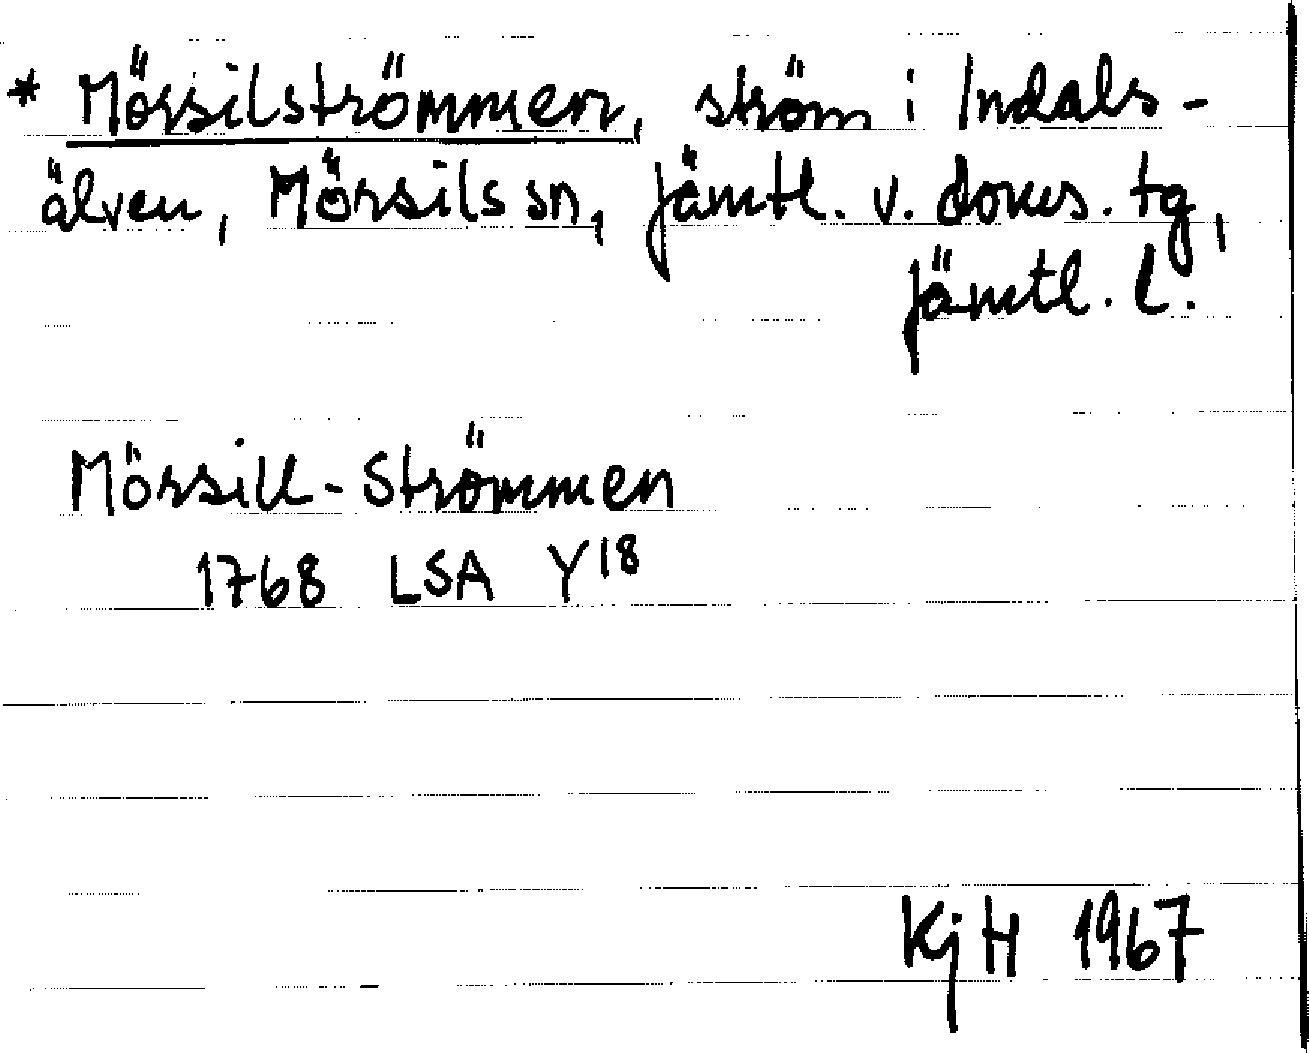 * Mörsilströmmen, ström i Indals-
älven, Mörsils sn, Jämtl. v. doms. tg,
Jämtl. l.
Mörsill-Strömmen
1768 LSA Y18
KjH 1967